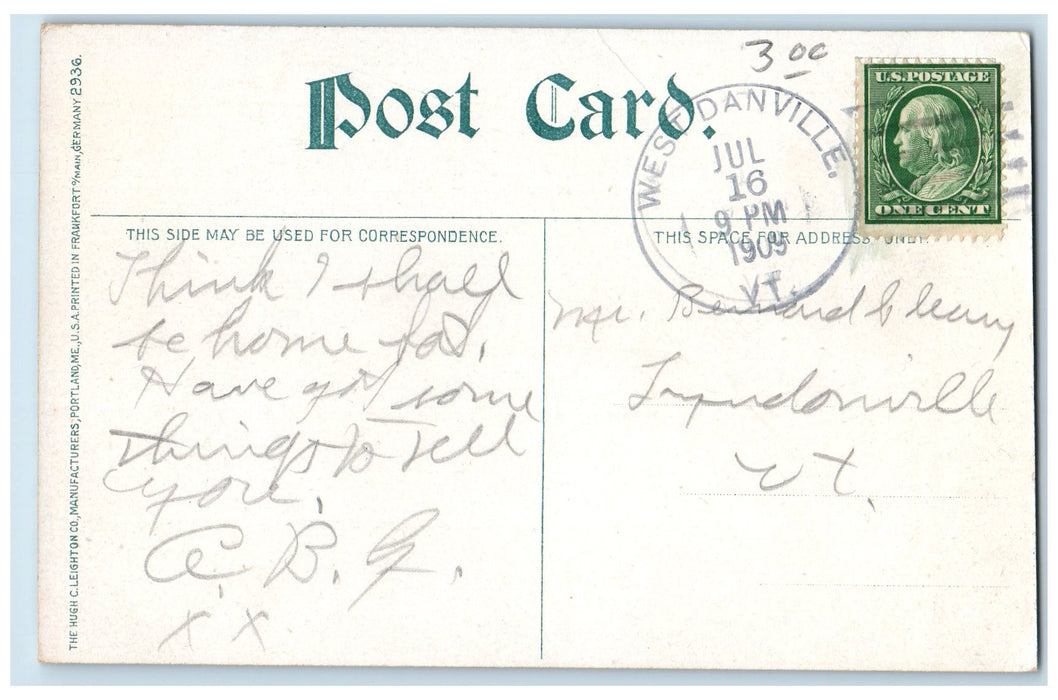 3 00
Post Card.
U.S. POSTAGE
ONE CENT
WEST DANVILLE,
JUL
16
9 PM
1909
VT.
THIS SIDE MAY BE USED FOR CORRESPONDENCE.
THIS SPACE FOR ADDRESS ONLY.
Think I shall
be home Sat.
Have got some
things to tell
you.
A. B. G.
x x
Mr. Bernard
Lyndonville
Vt.
THE HUGH C. LEIGHTON CO., MANUFACTURERS, PORTLAND, ME., U.S.A. PRINTED IN FRANKFORT o/MAIN, GERMANY 2936.